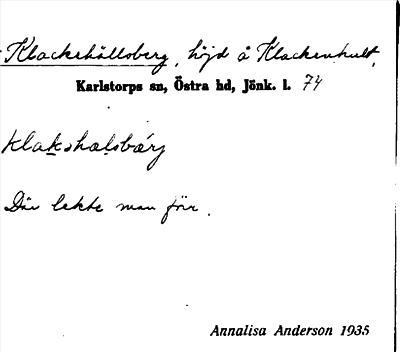 Klackehällsberg, höjd å Klackenhult,
Karlstorps sn, Östra hd, Jönk. l. 74
klakshalsbärj
Där lekte man förr.
Annalisa Anderson 1935